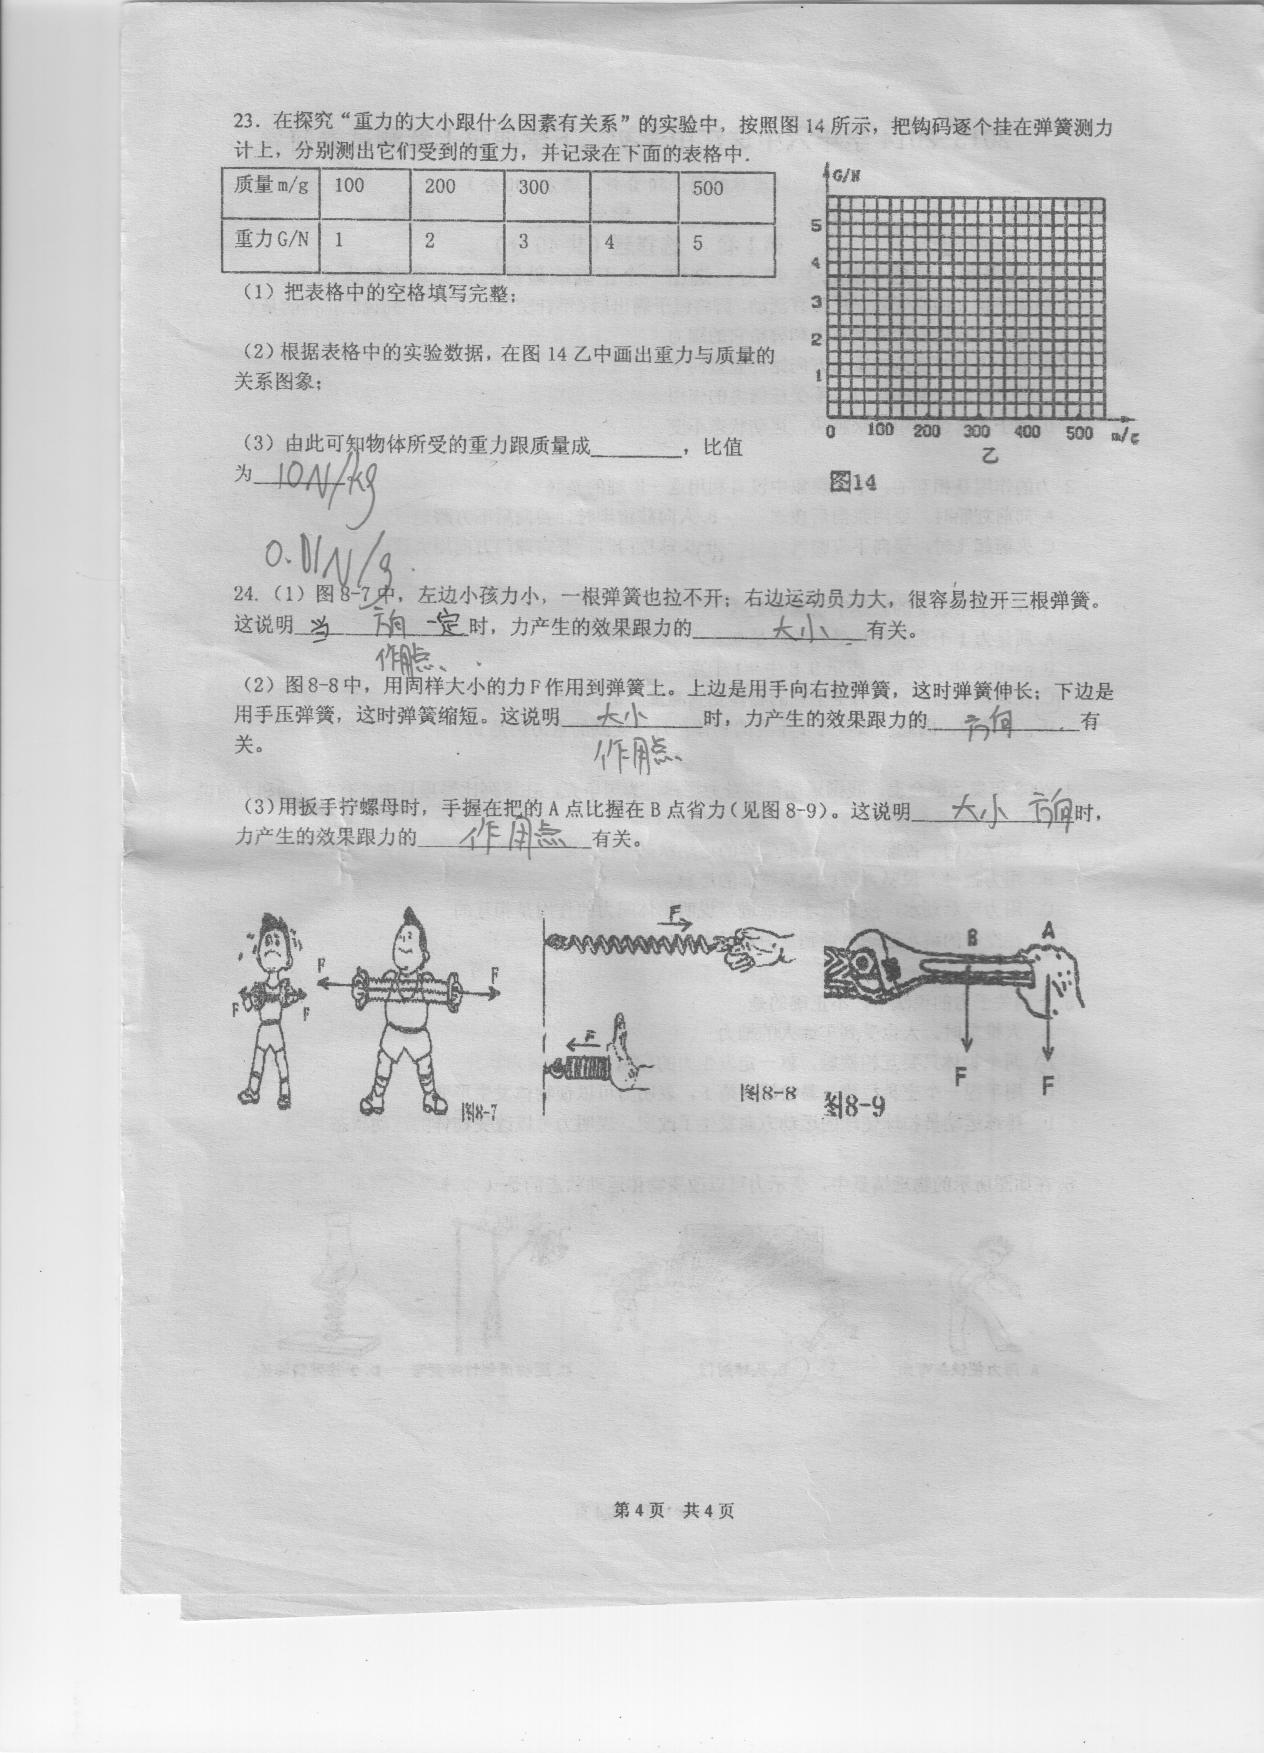 23. 在探究“重力的大小跟什么因素有关系”的实验中，按照图 14 所示，把钩码逐个挂在弹簧测力
计上，分别测出它们受到的重力，并记录在下面的表格中.
质量 m/g 100 200 300 500
重力 G/N 1 2 3 4 5
（1）把表格中的空格填写完整；
（2）根据表格中的实验数据，在图 14 乙中画出重力与质量的
关系图象；
（3）由此可知物体所受的重力跟质量成________，比值
为 10N/kg
0.01N/g.
G/N
5
4
3
2
1
0 100 200 300 400 500 m/g
乙
图14
24.（1）图 8-7 中，左边小孩力小，一根弹簧也拉不开；右边运动员力大，很容易拉开三根弹簧。
这说明 当 方向 一定 时，力产生的效果跟力的 大小 有关。
作用点、
（2）图 8-8 中，用同样大小的力 F 作用到弹簧上。上边是用手向右拉弹簧，这时弹簧伸长；下边是
用手压弹簧，这时弹簧缩短。这说明 大小 时，力产生的效果跟力的 方向 有
作用点、
关。
（3）用扳手拧螺母时，手握在把的 A 点比握在 B 点省力（见图 8-9）。这说明 大小 方向 时，
力产生的效果跟力的 作用点 有关。
F F F F
图8-7
F
F
图8-8
B A
F F
图8-9
第 4 页 共 4 页